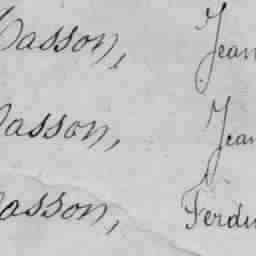 Masson, Jean
Masson, Jean
Masson, Ferdi